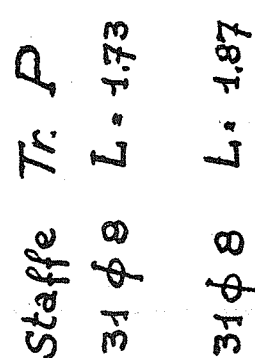 Staffe Tr. P
31 ϕ 8 L = 1.73
31 ϕ 8 L = 1.87